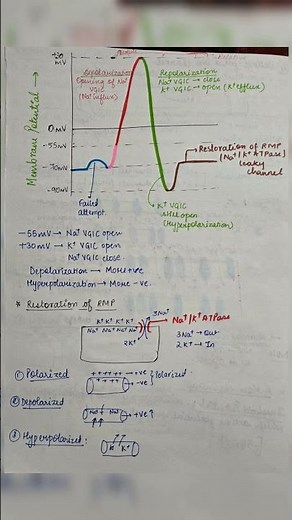 +30
mV
Depolarization
Opening of Na+
VGIC
(Na+ influx)
Repolarization
Na+ VGIC → close
K+ VGIC → open (K+ efflux)
Membrane Potential →
0 mV
-55mV
-70mV
-90mV
Failed
attempt
Restoration of RMP
(Na+/K+ ATPase)
leaky
channel
K+ VGIC
still open
(Hyperpolarization)
-55mV → Na+ VGIC open
+30mV → K+ VGIC open
Na+ VGIC close
Depolarization → More +ve
Hyperpolarization → More -ve.
* Restoration of RMP
K+ K+ K+ K+
3Na+
Na+/K+ ATPase
Na+ Na+ Na+ Na+
2K+
3Na+ → Out
2K+ → In
① Polarized
+++++ → +ve
----- → -ve
Polarized
② Depolarized
Na+ Na+
→ +ve↑
③ Hyperpolarized:
K+ K+